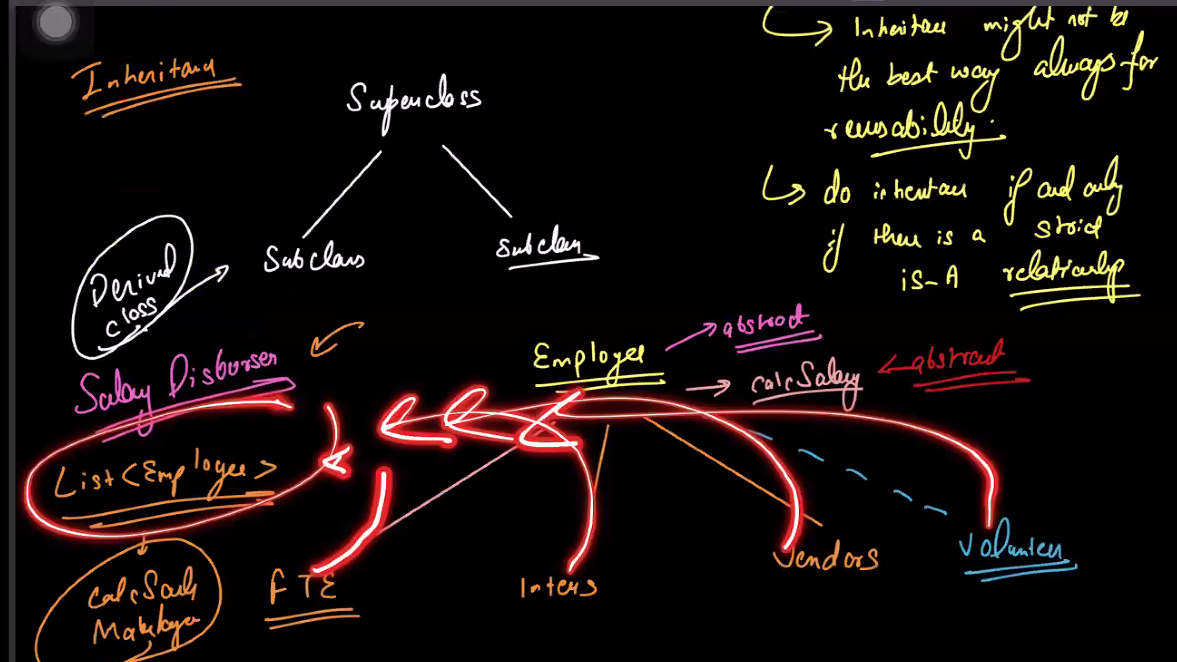 Inheritance
Superclass
Subclass
Subclass
Derived
class
Inheritance might not be
the best way always for
reusability.
do inheritance if and only
if there is a strict
is-A relationship
Salary Disburser
List<Employee>
Employee
abstract
calcSalary
abstract
FTE
Interns
Vendors
Volunteer